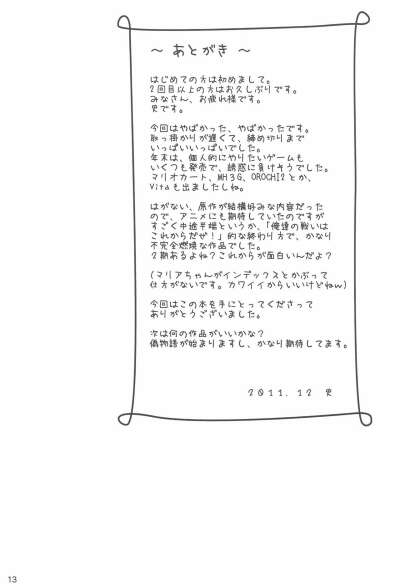 ～ あとがき ～
はじめての方は初めまして。
2回目以上の方はお久しぶりです。
みなさん、お疲れ様です。
史です。
今回はやばかった、やばかったです。
取っ掛かりが遅くて、締め切りまで
いっぱいいっぱいでした。
年末は、個人的にやりたいゲームも
いくつも発売で、誘惑に負けそうでした。
マリオカート、MH3G、OROCHI2とか、
Vitaも出ましたしね。
はがない、原作が結構好みな内容だった
ので、アニメにも期待していたのですが
すごく中途半端というか、「俺達の戦いは
これからだぜ！」的な終わり方で、かなり
不完全燃焼な作品でした。
2期あるよね？これからが面白いんだよ？
(マリアちゃんがインデックスとかぶって
仕方がないです。カワイイからいいけどねw)
今回はこの本を手にとってくださって
ありがとうございました。
次は何の作品がいいかな？
偽物語が始まりますし、かなり期待してます。
2011.12 史
13